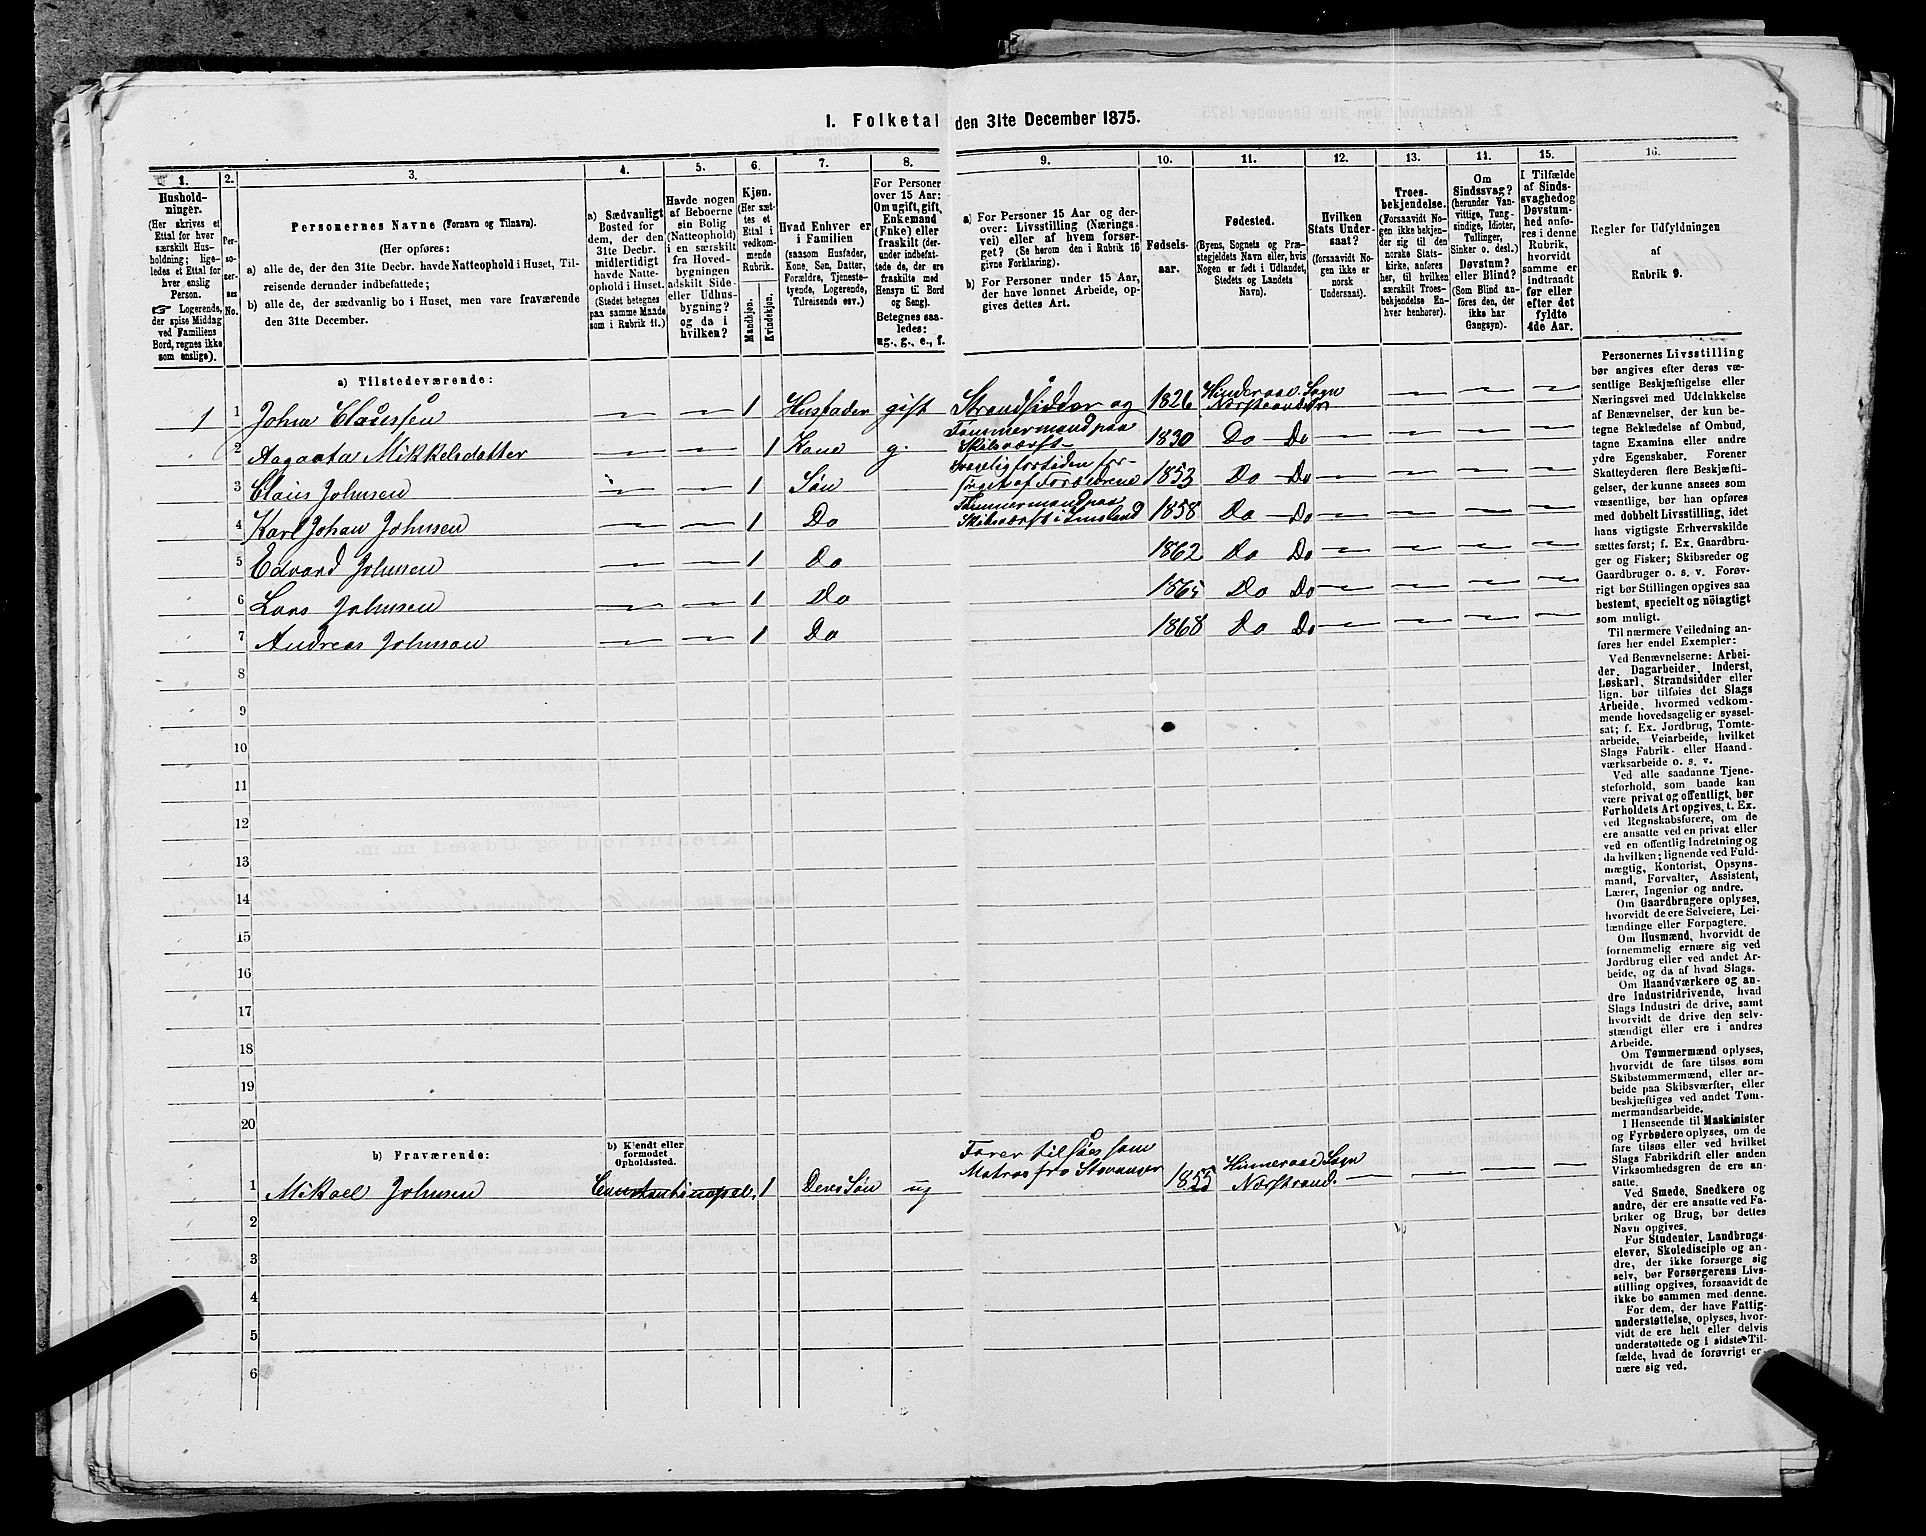 I. Folketal den 31te December 1875.
1.
2.
3.
4.
5.
6.
7.
8.
9.
10.
11.
12.
13.
14.
15.
16.
Hushold-
ninger.
(Her skrives et
Ettal for hver
særskilt Hus-
holdning; lige-
ledes et Ettal for
hver enslig
Person.
☞ Logerende,
der spise Middag
ved Familiens
Bord, regnes ikke
som enslige).
Per-
so-
ner-
nes
No.
Personernes Navne (Fornavn og Tilnavn).
(Her opføres:
a) alle de, der den 31te Decbr. havde Natteophold i Huset, Til-
reisende derunder indbefattede;
b) alle de, der sædvanlig bo i Huset, men vare fraværende
den 31te December.
a) Sædvanligt
Bosted for
dem, der den
31te Decbr.
midlertidigt
havde Natte-
ophold i Huset.
(Stedet betegnes
paa samme Maade
som i Rubrik 11.)
Havde nogen
af Beboerne
sin Bolig
(Natteophold)
i en særskilt
fra Hoved-
bygningen
adskilt Side-
eller Udhus-
bygning?
og da i
hvilken?
Kjøn.
(Her sæt-
tes et
Ettal i
vedkom-
mende
Rubrik.
Mandkjøn.
Kvindekjøn.
Hvad Enhver er
i Familien
(saasom Husfader,
Kone, Søn, Datter,
Forældre, Tjeneste-
tyende, Logerende,
Tilreisende osv.)
For Personer
over 15 Aar:
Om ugift, gift,
Enkemand
(Enke) eller
fraskilt (der-
under indbefat-
tede de, der ere
fraskilte med
Hensyn til Bord
og Seng).
Betegnes saa-
ledes:
ug., g., e., f.
a) For Personer 15 Aar og der-
over: Livsstilling (Nærings-
vei) eller af hvem forsør-
get? (Se herom den i Rubrik 16
givne Forklaring).
b) For Personer under 15 Aar,
der have lønnet Arbeide, op-
gives dettes Art.
Fødsels-
aar.
Fødested.
(Byens, Sognets og Præ-
stegjeldets Navn eller, hvis
Nogen er født i Udlandet,
Stedets og Landets
Navn).
Hvilken
Stats Under-
saat?
(forsaavidt No-
gen ikke er
norsk
Undersaat).
Troes-
bekjendelse.
(Forsaavidt No-
gen ikke bekjen-
der sig til den
norske Stats-
kirke, anføres
her, til hvilken
særskilt Troes-
bekjendelse En-
hver henhører).
Om
Sindssvag?
(herunder Van-
vittige, Tung-
sindige, Idioter,
Tullinger,
Sinker o. desl.)
Døvstum?
eller Blind?
(Som Blind an-
føres den, der
ikke har
Gangsyn).
I Tilfælde
af Sinds-
svaghed og
Døvstum-
hed anfø-
res i denne
Rubrik,
hvorvidt
samme er
indtraadt
før eller
efter det
fyldte
4de Aar.
Regler for Udfyldningen
af
Rubrik 9.
a) Tilstedeværende:
1 1 John Claussen 1 Husfader gift Strandsidder og Tømmermand paa Skibsværft 1826 Hinderaae Sogn Narstrands
2 Aagaata Mikkelsdatter 1 Kone g. 1830 Do Do
3 Claus Johnsen 1 Søn for Tiden for-sørget af Forældrene 1853 Do Do
4 Karl Johan Johnsen 1 Do Tømmermand paa Skibsværft i Imsland 1858 Do Do
5 Edvard Johnsen 1 Do 1862 Do Do
6 Lars Johnsen 1 Do 1865 Do Do
7 Andreas Johnson 1 Do 1868 Do Do
8
9
10
11
12
13
14
15
16
17
18
19
20
b) Fraværende:
b) Kjendt eller
formodet
Opholdssted.
1 Mikael Johnsen Constantinopel. 1 Deres Søn ug Farer tilsøes som Matros fra Stavanger 1855 Hinneraae Sogn Narstrand.
2
3
4
5
6
Personernes Livsstilling
bør angives efter deres væ-
sentlige Beskjæftigelse eller
Næringsvei med Udelukkelse
af Benævnelser, der kun be-
tegne Beklædelse af Ombud,
tagne Examina eller andre
ydre Egenskaber. Forener
Skatteyderen flere Beskjæfti-
gelser, der kunne ansees som
væsentlige, bør han opføres
med dobbelt Livsstilling, idet
hans vigtigste Erhvervskilde
sættes først; f. Ex. Gaardbru-
ger og Fisker; Skibsreder og
Gaardbruger o. s. v. Forøv-
rigt bør Stillingen opgives saa
bestemt, specielt og nöiagtigt
som muligt.
Til nærmere Veiledning an-
føres her endel Exempler:
Ved Benævnelserne: Arbei-
der, Dagarbeider, Inderst,
Løskarl, Strandsidder eller
lign. bør tilføies det Slags
Arbeide, hvormed vedkom-
mende hovedsagelig er syssel-
sat; f. Ex. Jordbrug, Tomte-
arbeide, Veiarbeide, hvilket
Slags Fabrik- eller Haand-
værksarbeide o. s. v.
Ved alle saadanne Tjene-
steforhold, som baade kan
være privat og offentligt, bør
Forholdets Art opgives, t. Ex.
ved Regnskabsførere, om de
ere ansatte ved en privat eller
ved en offentlig Indretning og
da hvilken; lignende ved Fuld-
mægtig, Kontorist, Opsyns-
mand, Forvalter, Assistent,
Lærer, Ingeniør og andre.
Om Gaardbrugere oplyses,
hvorvidt de ere Selveiere, Lei-
lændinge eller Forpagtere.
Om Husmænd, hvorvidt de
fornemmelig ernære sig ved
Jordbrug eller ved andet Ar-
beide, og da af hvad Slags.
Om Haandværkere og an-
dre Industridrivende, hvad
Slags Industri de drive, samt
hvorvidt de drive den selv-
stændigt eller ere i andres
Arbeide.
Om Tømmermænd oplyses,
hvorvidt de fare tilsøs som
Skibstømmermænd, eller ar-
beide paa Skibsværfter, eller
beskjæftiges ved andet Tøm-
mermandsarbeide.
I Henseende til Maskinister
og Fyrbødere oplyses, om de
fare tilsøs eller ved hvilket
Slags Fabrikdrift eller anden
Virksomhedsgren de ere an-
satte.
Ved Smede, Snedkere og
andre, der ere ansatte ved Fa-
briker og Brug, bør dettes
Navn opgives.
For Studenter, Landbrugs-
elever, Skoledisciple og an-
dre, der ikke forsørge sig
selv, bør Forsørgerens Livs-
stilling opgives, forsaavidt de
ikke bo sammen med denne.
For dem, der have Fattig-
understøttelse, oplyses, hvor-
vidt de ere helt eller delvis
understøttede og i sidste Til-
fælde, hvad de forøvrigt er-
nære sig ved.